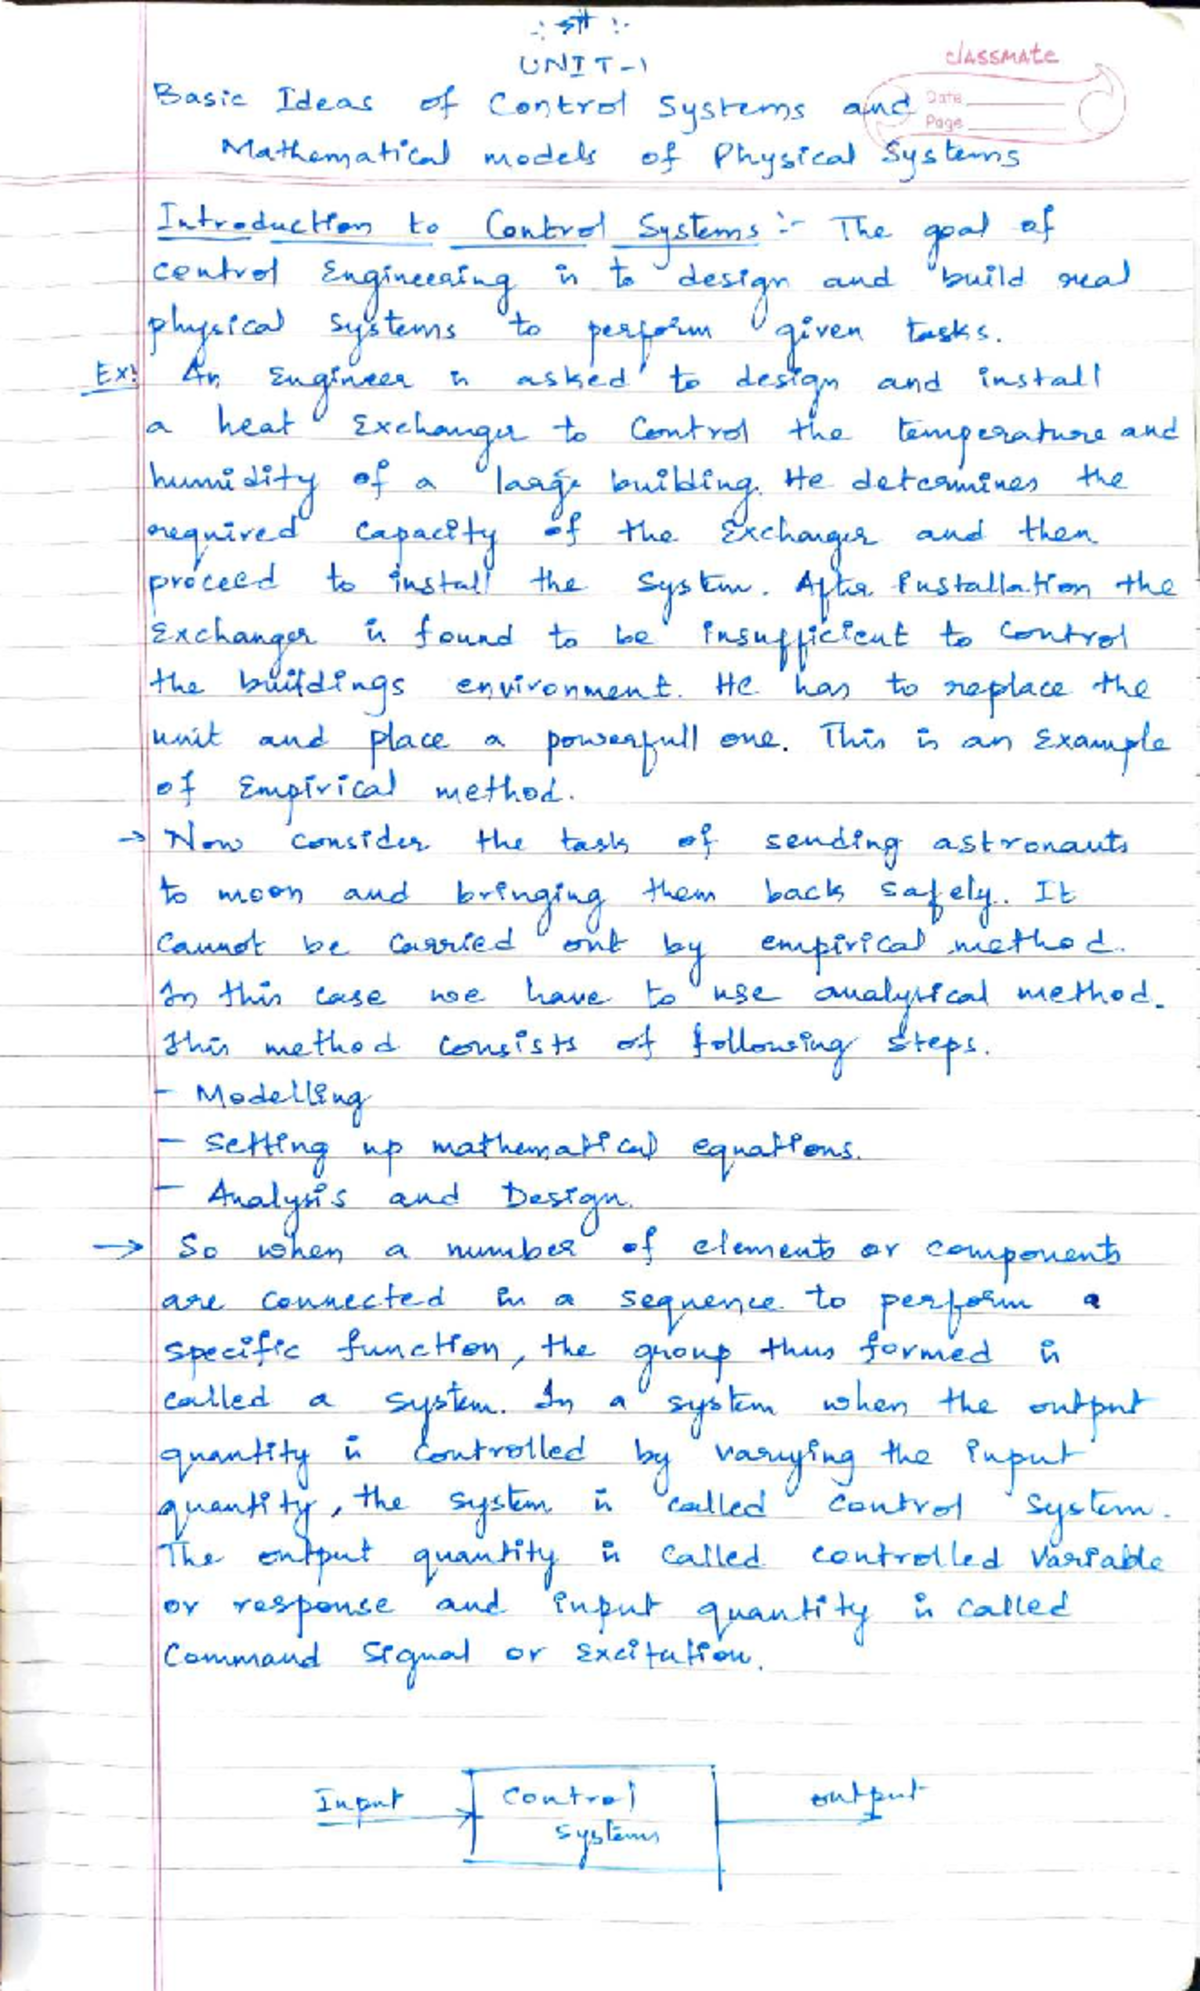 UNIT-1
classmate
Date
Page
Basic Ideas of Control Systems and
Mathematical models of Physical Systems
Introduction to Control Systems :- The goal of
control Engineering is to design and build real
physical systems to perform given tasks.
Ex: An Engineer is asked to design and install
a heat Exchanger to Control the temperature and
humidity of a large building. He determines the
required capacity of the Exchanger and then
proceed to install the System. After installation the
Exchanger is found to be insufficient to control
the buildings environment. He has to replace the
unit and place a powerfull one. This is an Example
of Empirical method.
→ Now consider the task of sending astronauts
to moon and bringing them back safely. It
Cannot be carried out by empirical method.
In this case we have to use analytical method.
This method consists of following steps.
- Modelling
- Setting up mathematical equations.
- Analysis and Design.
→ So when a number of elements or components
are connected in a sequence to perform a
specific function, the group thus formed is
called a system. In a system when the output
quantity is controlled by varying the input
quantity, the system is called control system.
The output quantity is called controlled variable
or response and input quantity is called
Command signal or Excitation.
Input
Control
systems
output